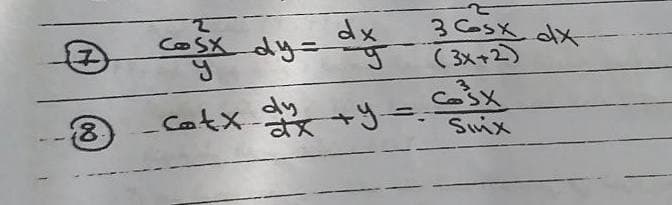 ⑦ cos²x/y dy = dx/y 3cos²x/(3x+2) dx
⑧ cotx dy/dx + y = cos³x/sinx